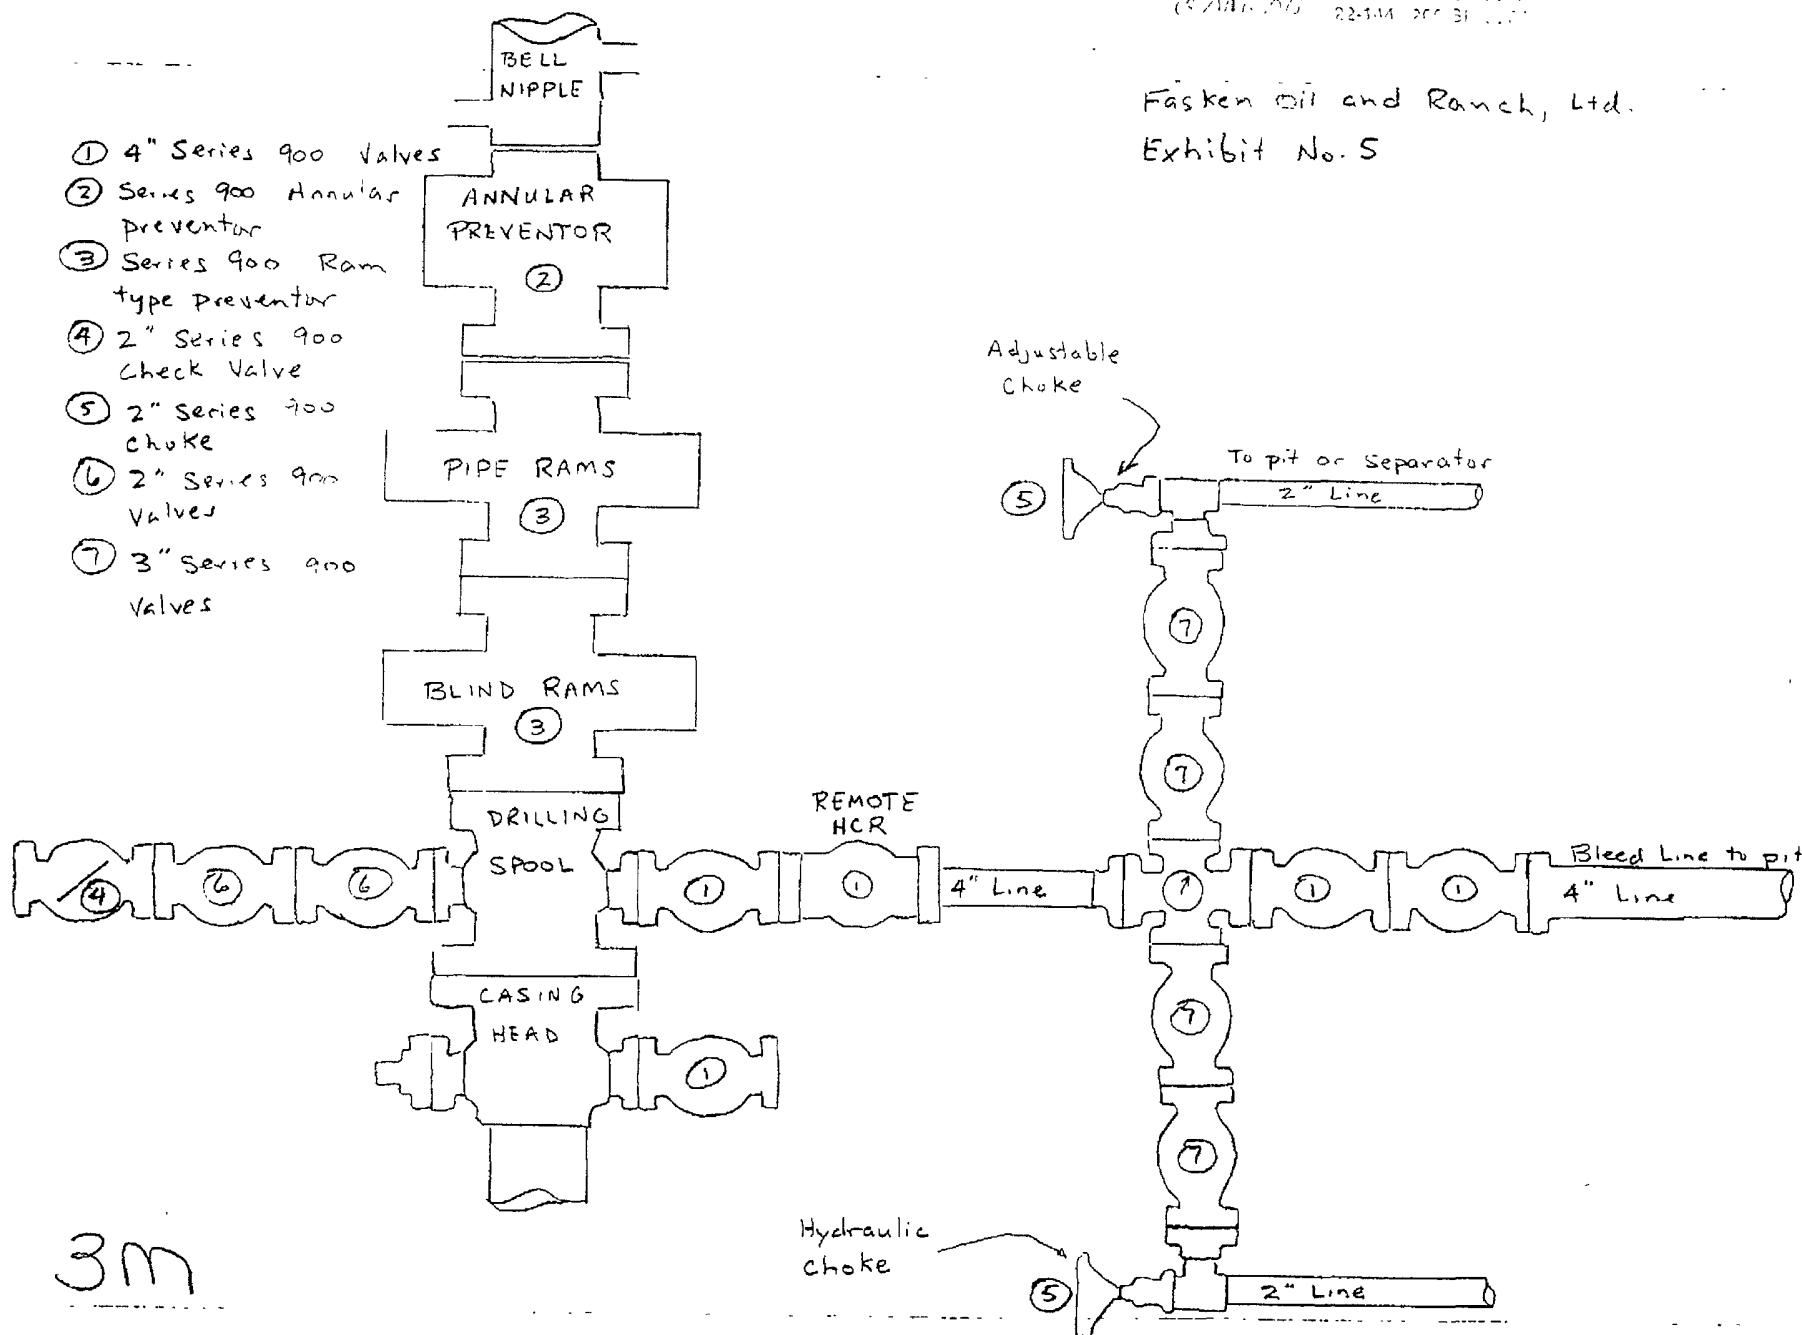 Fasken Oil and Ranch, Ltd.
Exhibit No. 5
① 4" Series 900 Valves
② Series 900 Annular
preventor
③ Series 900 Ram
type preventor
④ 2" Series 900
Check Valve
⑤ 2" Series 900
choke
⑥ 2" Series 900
Valves
⑦ 3" Series 900
Valves
BELL
NIPPLE
ANNULAR
PREVENTOR
②
PIPE RAMS
③
BLIND RAMS
③
DRILLING
SPOOL
④ ⑥ ⑥
①
REMOTE
HCR
①
4" Line
① ①
Bleed Line to pit
4" Line
CASING
HEAD
①
Adjustable
Choke
⑤
To pit or Separator
2" Line
⑦
⑦
⑦
⑦
Hydraulic
Choke
⑤
2" Line
3M